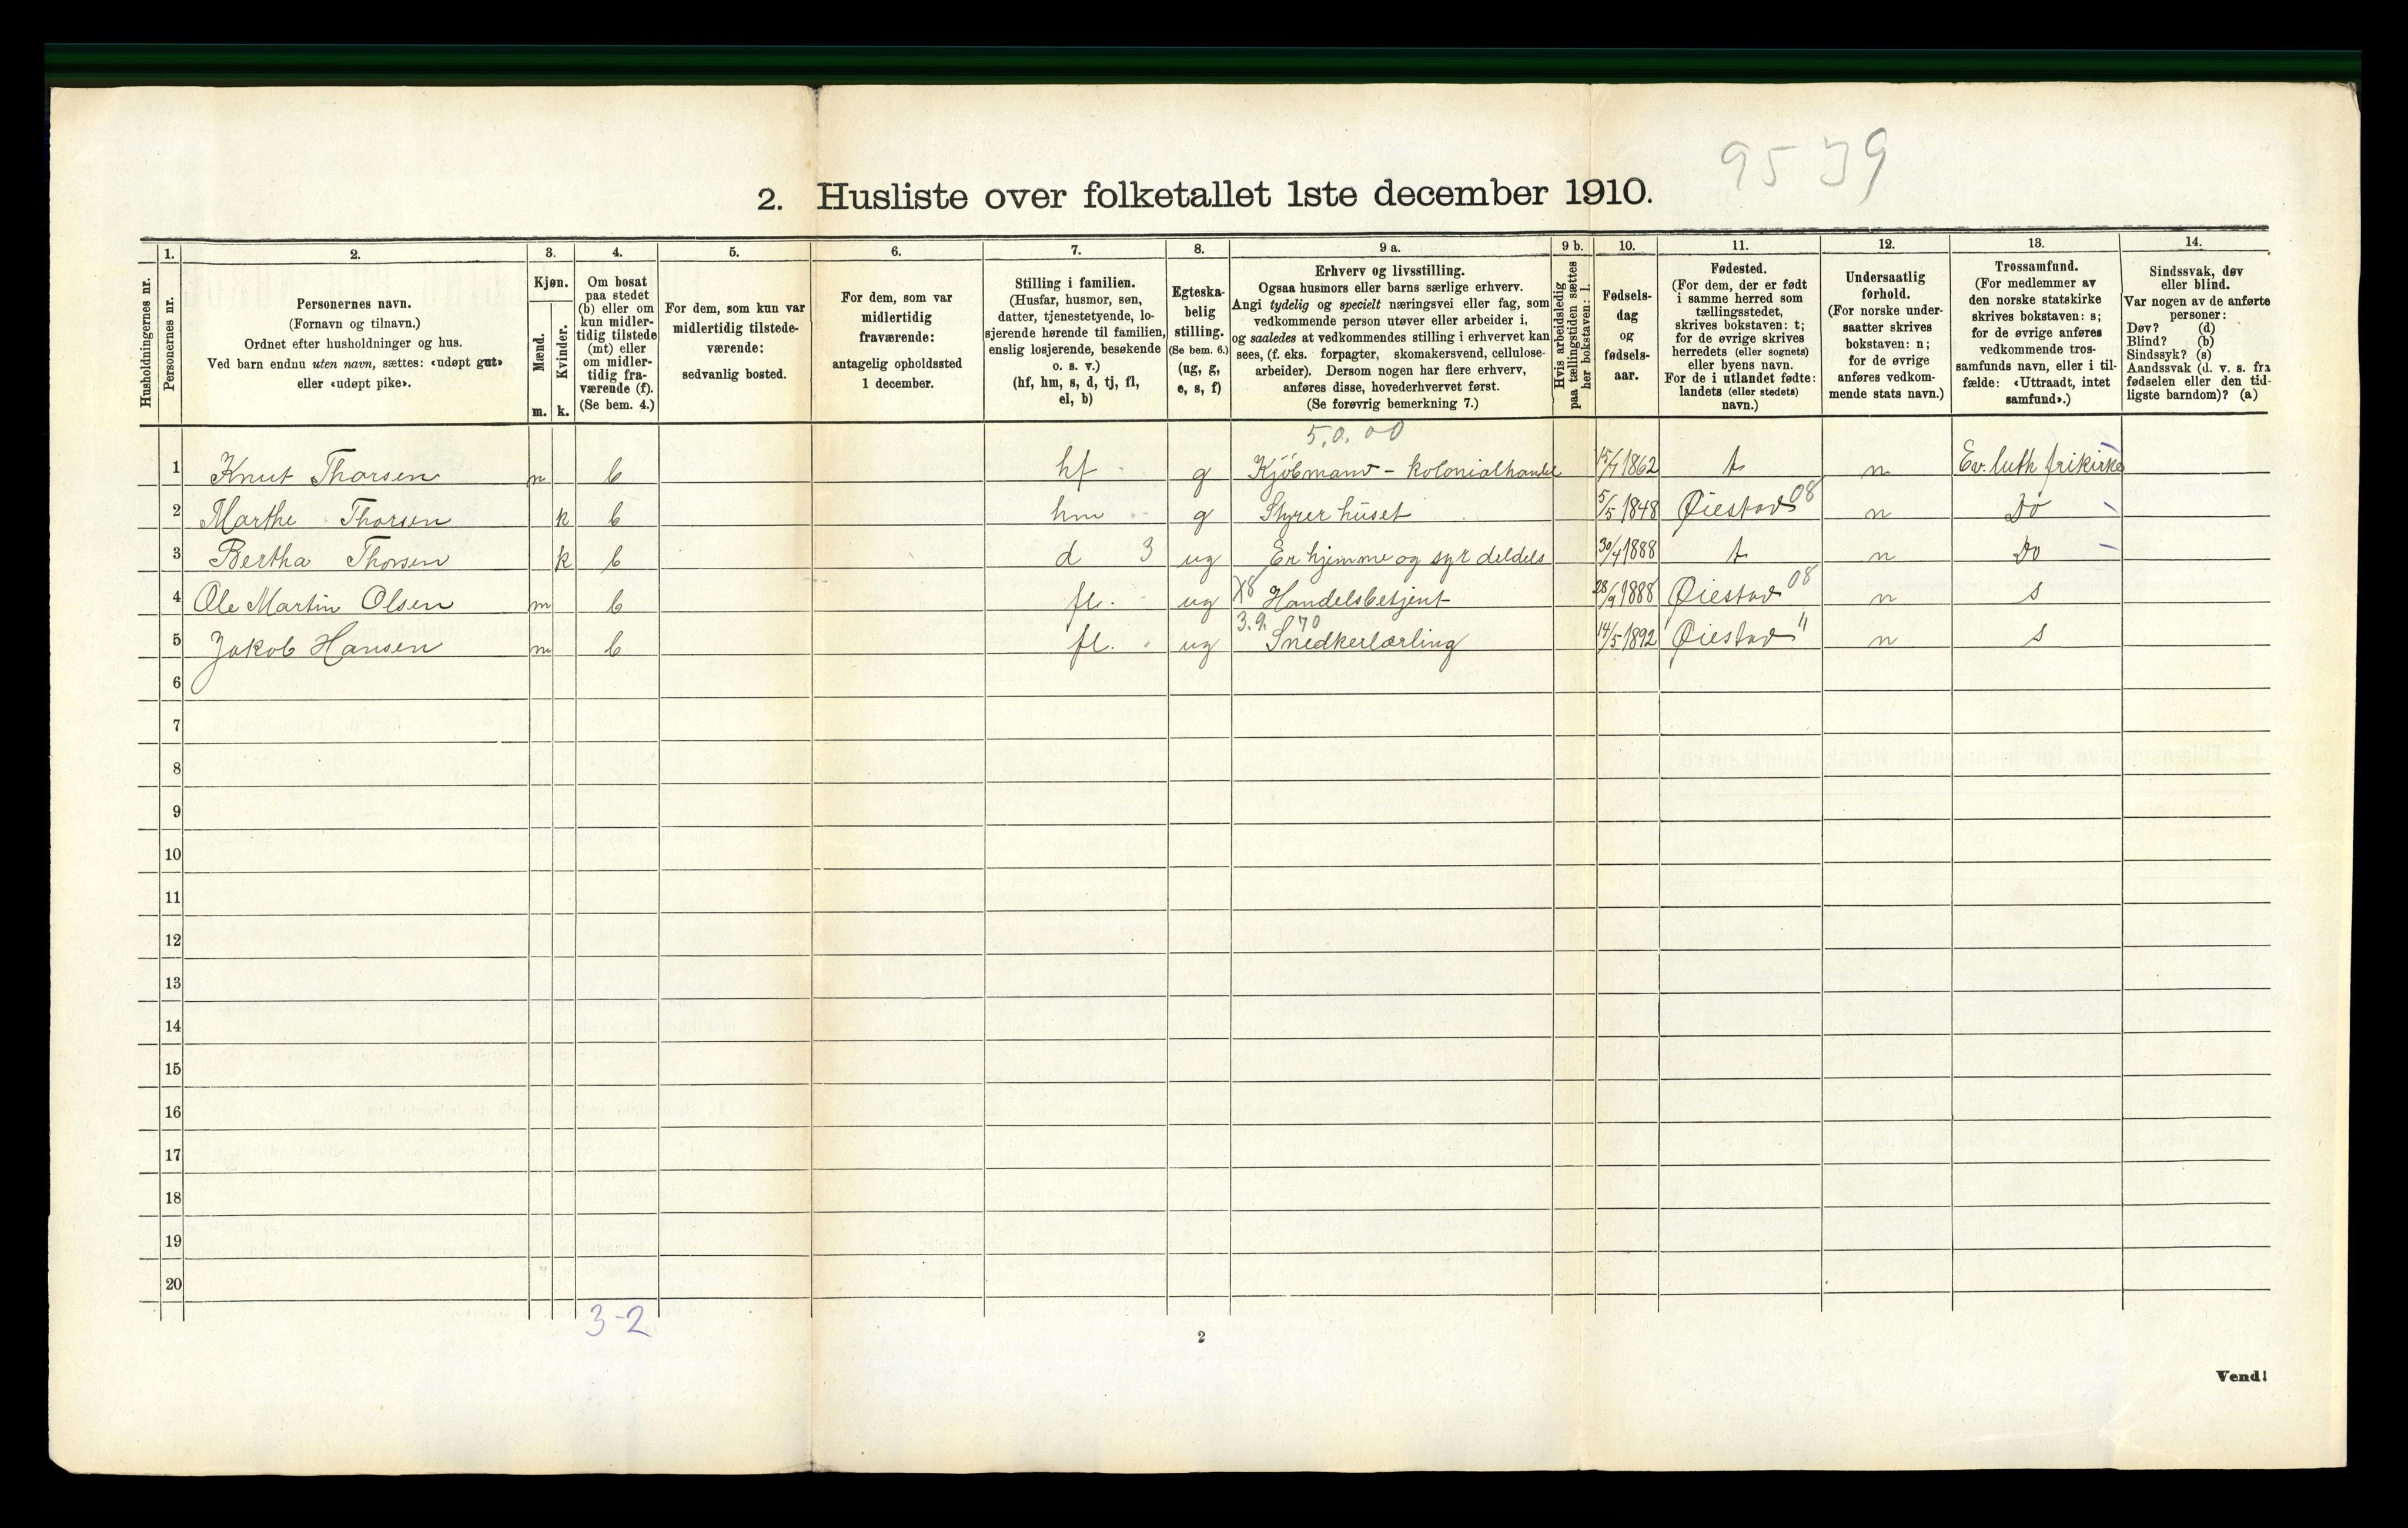 9539
2. Husliste over folketallet 1ste december 1910.
Husholdningernes nr.
1.
Personernes nr.
2.
Personernes navn.
(Fornavn og tilnavn.)
Ordnet efter husholdninger og hus.
Ved barn endnu uten navn, sættes: «udøpt gut»
eller «udøpt pike».
3.
Kjøn.
Mænd.
Kvinder.
m. k.
4.
Om bosat
paa stedet
(b) eller om
kun midler-
tidig tilstede
(mt) eller
om midler-
tidig fra-
værende (f).
(Se bem. 4.)
5.
For dem, som kun var
midlertidig tilstede-
værende:
sedvanlig bosted.
6.
For dem, som var
midlertidig
fraværende:
antagelig opholdssted
1 december.
7.
Stilling i familien.
(Husfar, husmor, søn,
datter, tjenestetyende, lo-
sjerende hørende til familien,
enslig losjerende, besøkende
o. s. v.)
(hf, hm, s, d, tj, fl,
el, b)
8.
Egteska-
belig
stilling.
(Se bem. 6.)
(ug, g,
e, s, f)
9 a.
Erhverv og livsstilling.
Ogsaa husmors eller barns særlige erhverv.
Angi tydelig og specielt næringsvei eller fag, som
vedkommende person utøver eller arbeider i,
og saaledes at vedkommendes stilling i erhvervet kan
sees, (f. eks. forpagter, skomakersvend, cellulose-
arbeider). Dersom nogen har flere erhverv,
anføres disse, hovederhvervet først.
(Se forøvrig bemerkning 7.)
9 b.
Hvis arbeidsledig
paa tællingstiden sættes
her bokstaven: l.
10.
Fødsels-
dag
og
fødsels-
aar.
11.
Fødested.
(For dem, der er født
i samme herred som
tællingsstedet,
skrives bokstaven: t;
for de øvrige skrives
herredets (eller sognets)
eller byens navn.
For de i utlandet fødte:
landets (eller stedets)
navn.)
12.
Undersaatlig
forhold.
(For norske under-
saatter skrives
bokstaven: n;
for de øvrige
anføres vedkom-
mende stats navn.)
13.
Trossamfund.
(For medlemmer av
den norske statskirke
skrives bokstaven: s;
for de øvrige anføres
vedkommende tros-
samfunds navn, eller i til-
fælde: «Uttraadt, intet
samfund».)
14.
Sindssvak, døv
eller blind.
Var nogen av de anførte
personer:
Døv? (d)
Blind? (b)
Sindssyk? (s)
Aandssvak (d. v. s. fra
fødselen eller den tid-
ligste barndom)? (a)
5.0.00
1 Knut Thorsen m b hf g Kjöbmand - kolonialhandel 15/7 1862 t n Ev. luth frikirke
2 Marthe Thorsen k b hm g Styrer huset 5/5 1848 Øiestad 08 n Do
3 Bertha Thorsen k b d 3 ug Er hjemme og syr deldels 30/4 1888 t n Do
4 Ole Martin Olsen m b fl. ug X8 Handelsbetjent 28/9 1888 Øiestad 08 n s
3.9. 70
5 Jakob Hansen m b fl. ug Snedkerlærling 14/5 1892 Øiestad " n s
6
7
8
9
10
11
12
13
14
15
16
17
18
19
20
3-2
2
Vend!